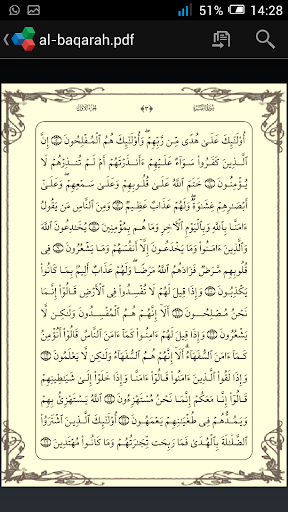 51% 14:28
al-baqarah.pdf
أُوْلَـٰٓئِكَ عَلَىٰ هُدًى مِّن رَّبِّهِمْ ۖ وَأُوْلَـٰٓئِكَ هُمُ ٱلْمُفْلِحُونَ ۝ إِنَّ
ٱلَّذِينَ كَفَرُواْ سَوَآءٌ عَلَيْهِمْ ءَأَنذَرْتَهُمْ أَمْ لَمْ تُنذِرْهُمْ لَا
يُؤْمِنُونَ ۝ خَتَمَ ٱللَّهُ عَلَىٰ قُلُوبِهِمْ وَعَلَىٰ سَمْعِهِمْ ۖ وَعَلَىٰٓ
أَبْصَـٰرِهِمْ غِشَـٰوَةٌ ۖ وَلَهُمْ عَذَابٌ عَظِيمٌ ۝ وَمِنَ ٱلنَّاسِ مَن يَقُولُ
ءَامَنَّا بِٱللَّهِ وَبِٱلْيَوْمِ ٱلْأٓخِرِ وَمَا هُم بِمُؤْمِنِينَ ۝ يُخَـٰدِعُونَ ٱللَّهَ
وَٱلَّذِينَ ءَامَنُواْ وَمَا يَخْدَعُونَ إِلَّآ أَنفُسَهُمْ وَمَا يَشْعُرُونَ ۝ فِى
قُلُوبِهِم مَّرَضٌ فَزَادَهُمُ ٱللَّهُ مَرَضًا ۖ وَلَهُمْ عَذَابٌ أَلِيمٌۢ بِمَا كَانُواْ
يَكْذِبُونَ ۝ وَإِذَا قِيلَ لَهُمْ لَا تُفْسِدُواْ فِى ٱلْأَرْضِ قَالُوٓاْ إِنَّمَا
نَحْنُ مُصْلِحُونَ ۝ أَلَآ إِنَّهُمْ هُمُ ٱلْمُفْسِدُونَ وَلَـٰكِن لَّا
يَشْعُرُونَ ۝ وَإِذَا قِيلَ لَهُمْ ءَامِنُواْ كَمَآ ءَامَنَ ٱلنَّاسُ قَالُوٓاْ أَنُؤْمِنُ
كَمَآ ءَامَنَ ٱلسُّفَهَآءُ ۗ أَلَآ إِنَّهُمْ هُمُ ٱلسُّفَهَآءُ وَلَـٰكِن لَّا يَعْلَمُونَ ۝
وَإِذَا لَقُواْ ٱلَّذِينَ ءَامَنُواْ قَالُوٓاْ ءَامَنَّا وَإِذَا خَلَوْاْ إِلَىٰ شَيَـٰطِينِهِمْ
قَالُوٓاْ إِنَّا مَعَكُمْ إِنَّمَا نَحْنُ مُسْتَهْزِءُونَ ۝ ٱللَّهُ يَسْتَهْزِئُ بِهِمْ
وَيَمُدُّهُمْ فِى طُغْيَـٰنِهِمْ يَعْمَهُونَ ۝ أُوْلَـٰٓئِكَ ٱلَّذِينَ ٱشْتَرَوُاْ
ٱلضَّلَـٰلَةَ بِٱلْهُدَىٰ فَمَا رَبِحَت تِّجَـٰرَتُهُمْ وَمَا كَانُواْ مُهْتَدِينَ ۝